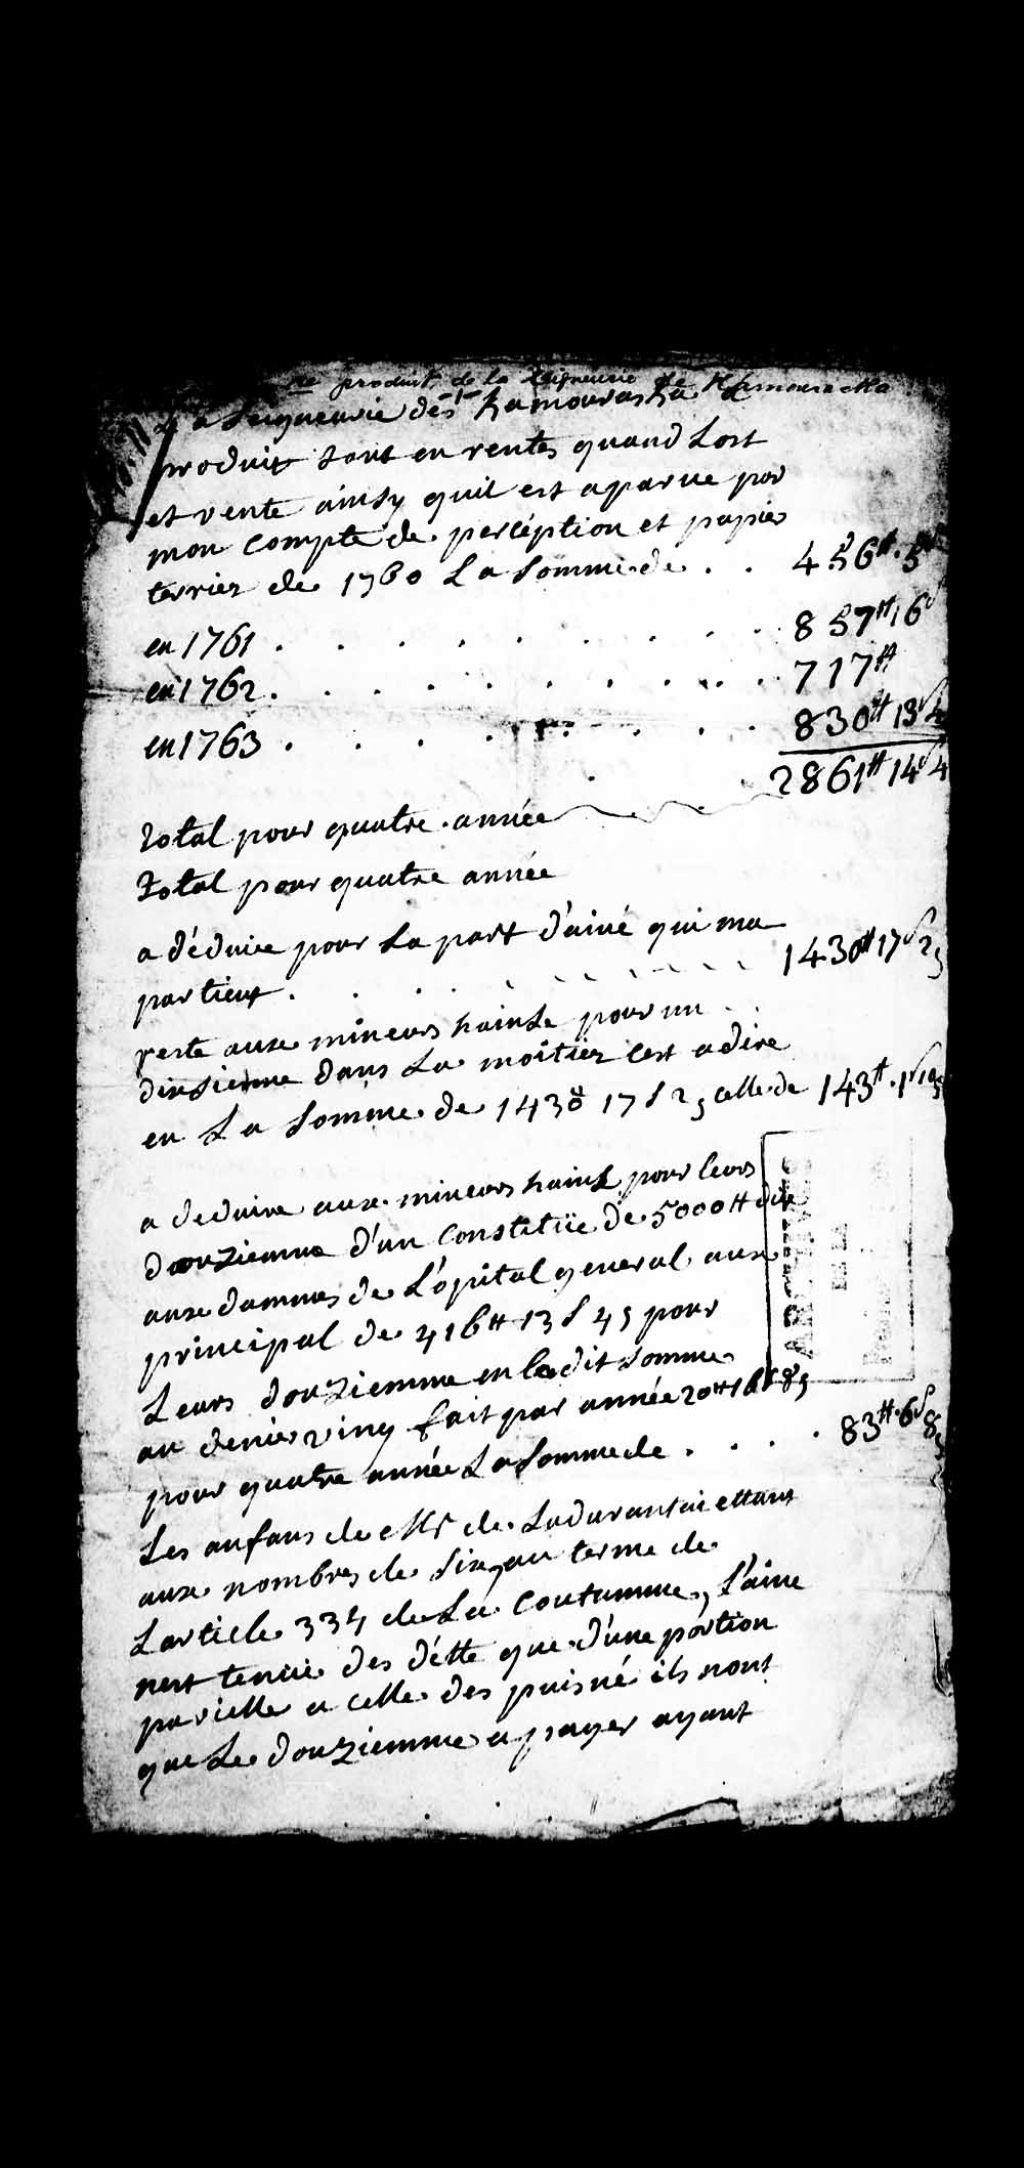 produit de la Seigneurie de Kamouraska
La Seigneurie des Kamouraska
produit tant en rentes quand Lost
et vente ainsy quil est aparue par
mon compte de perception et papier
terrier de 1760 La Somme de . . 456# . 5
en 1761 . . . . . . . . . 857# 16
en 1762 . . . . . . . . . 717#
en 1763 . . . . . . . . 830# 13 4
2861# 14 4
total pour quatre année
total pour quatre année
a déduire pour La part d'ainé qui ma
partient . . . . . . . . 1430# 17 s 2
reste aux mineurs hainse pour un
dixsieme dans La moitiez cest adire
en La Somme de 1430 17 s 2 celle de 143# . 1 s
a deduire aux mineurs hains pour leurs
douziemme d'un constetüe de 5000#
aux dammes de L'ôpital general aux
principal de 416# 13 s 4 pour
Leurs douziemme en ledit Somme
au denier ving fait par année 20# 16 s 8
pour quatre année La Somme de . . . . 83# . 6 s 8
Les anfans de Mr de Ladurantaie ettant
aux nombres de Six, au terme de
L'article 334 de La Coutumme, L'aine
nest tenüe des détte que d'une portion
parielle a celle des puisné ils nont
que Le douziemme a payer ayant
ARCHIVES
DE LA